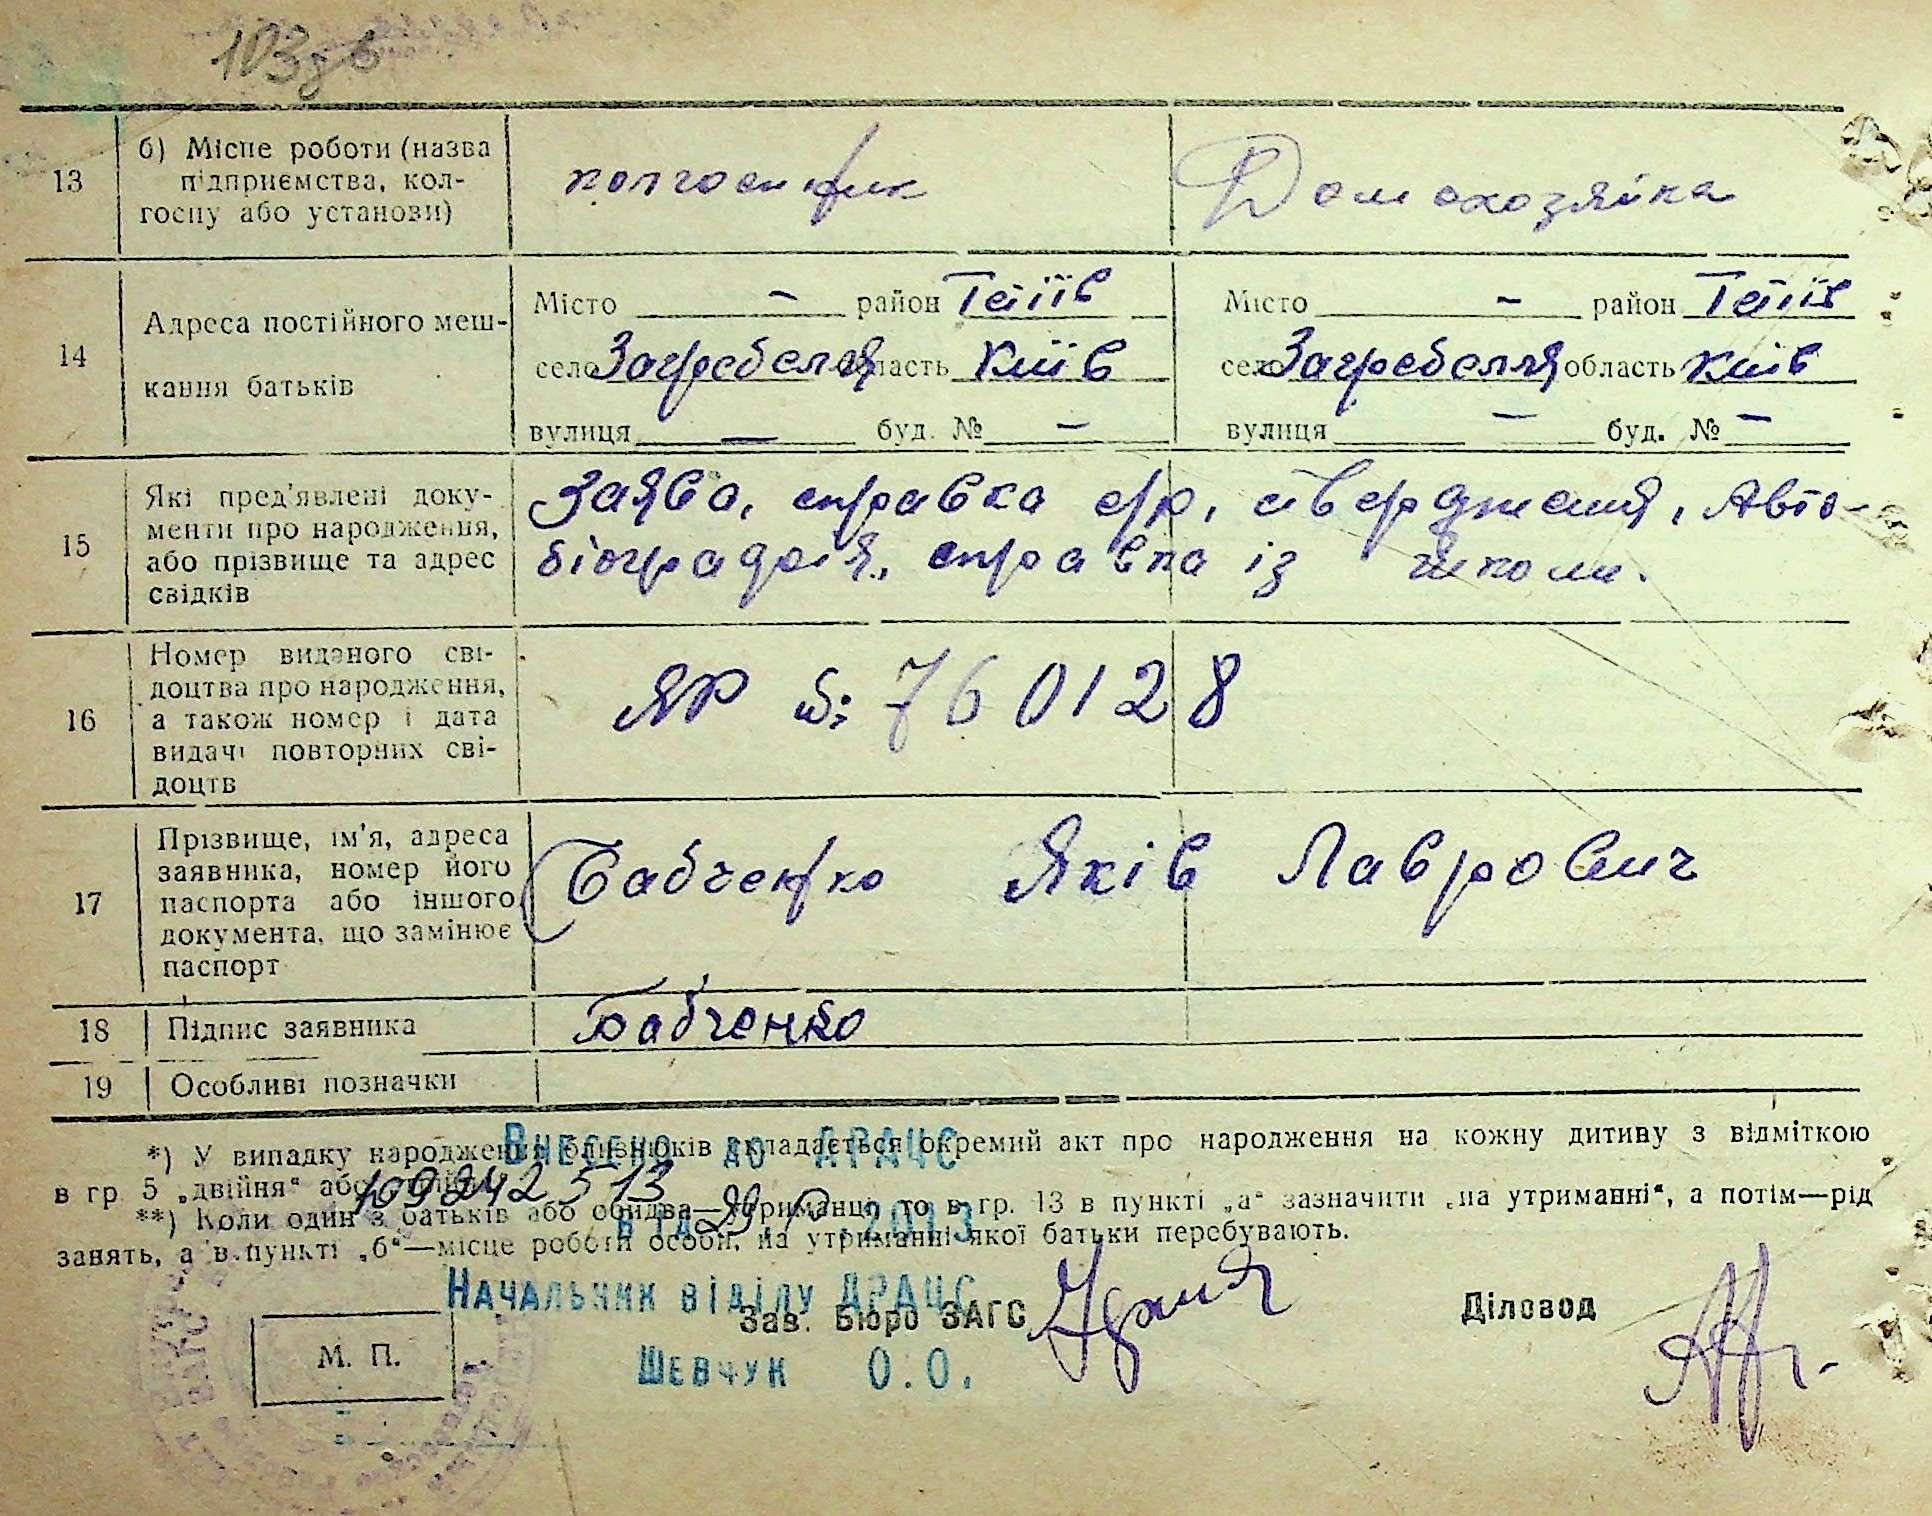 103
13 б) Місце роботи (назва підприємства, колгоспу або установи) колгоспник Домохозяйка
14 Адреса постійного мешкання батьків
Місто — район Тетіїв Місто — район Тетіїв
село Загребелля область Київ село Загребелля область Київ
вулиця — буд. № — вулиця — буд. № —
15 Які пред'явлені документи про народження, або прізвище та адрес свідків
Заява, справка с/р, ствердження, Авто-
біографія, справка із школи.
16 Номер виданого свідоцтва про народження, а також номер і дата видачі повторних свідоцтв
ЯР №: 760128
17 Прізвище, ім'я, адреса заявника, номер його паспорта або іншого документа, що замінює паспорт
Бабченко Яків Лаврович
18 Підпис заявника Бабченко
19 Особливі позначки
*) У випадку народження близнюків складається окремий акт про народження на кожну дитину з відміткою
в гр. 5 „двійня“ або
**) Коли один з батьків або обидва—утриманці то в гр. 13 в пункті „а“ зазначити „на утриманні“, а потім—рід
занять, а в пункті „б“—місце роботи особи, на утриманні якої батьки перебувають.
Внесено до ДРАЦС
від 2013
Начальник відділу ДРАЦС
Шевчук О.О.
Зав. Бюро ЗАГС
Діловод
М. П.